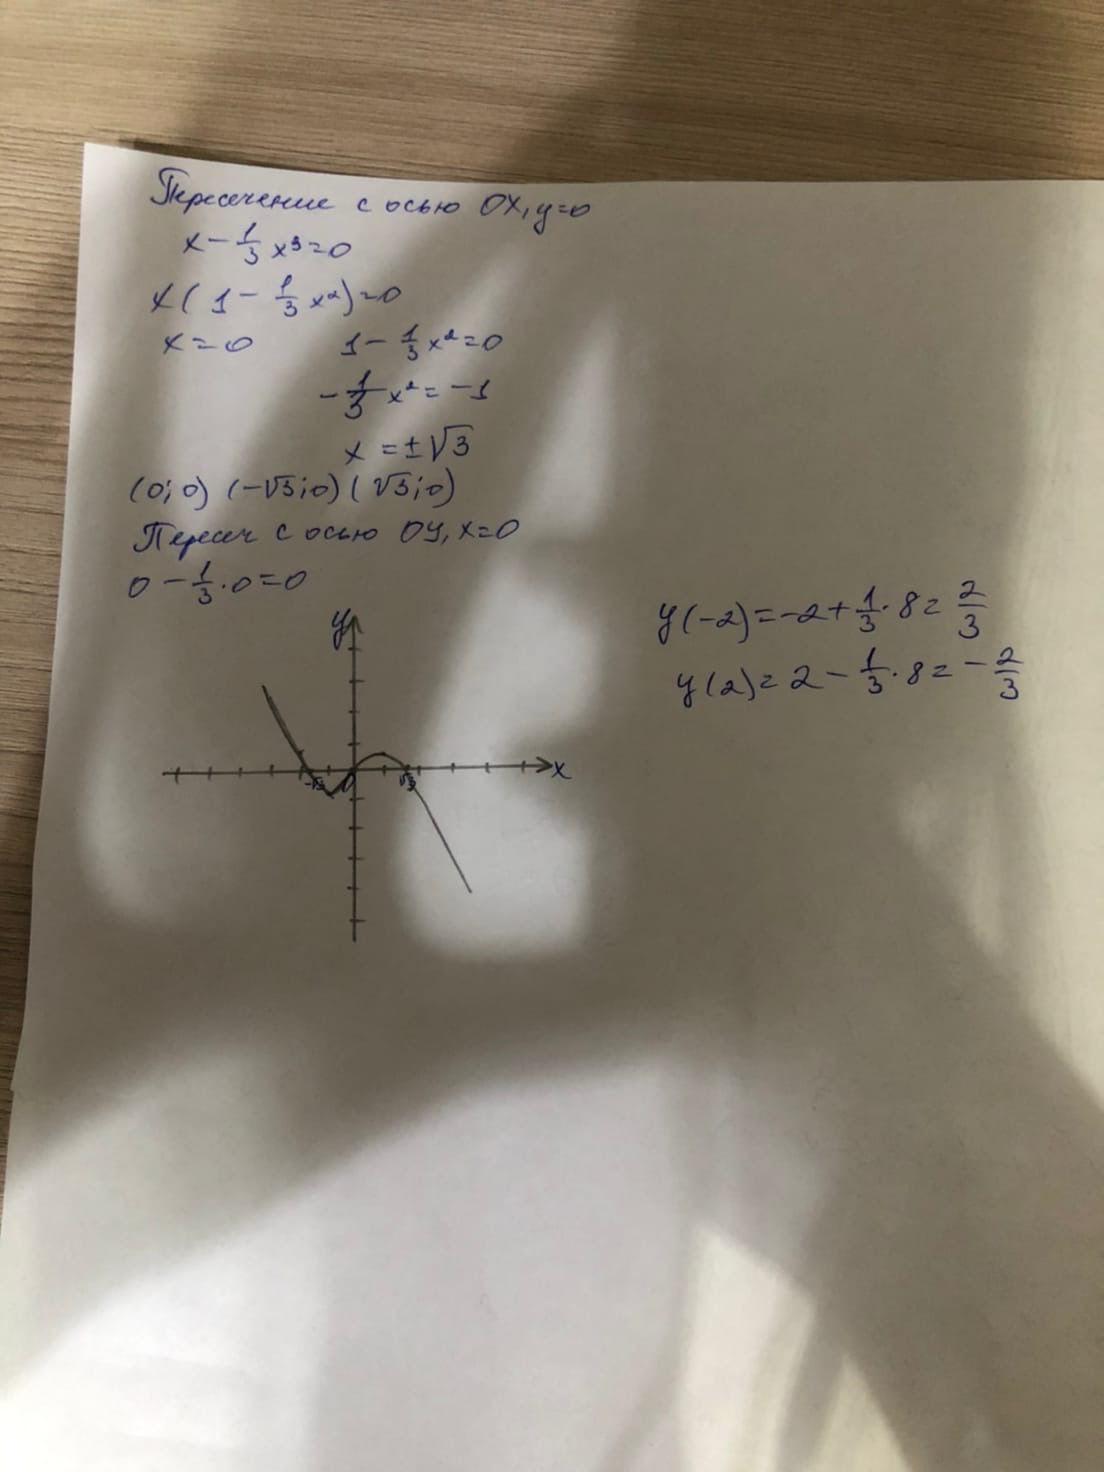 Пересечение с осью OX, y=0
x - 1/3 x³ = 0
x(1 - 1/3 x²) = 0
x = 0 1 - 1/3 x² = 0
-1/3 x² = -1
x = ±√3
(0; 0) (-√3; 0) (√3; 0)
Пересеч с осью OY, x=0
0 - 1/3 · 0 = 0
y(-2) = -2 + 1/3 · 8 = 2/3
y(2) = 2 - 1/3 · 8 = -2/3
y
x
-√3 0 √3